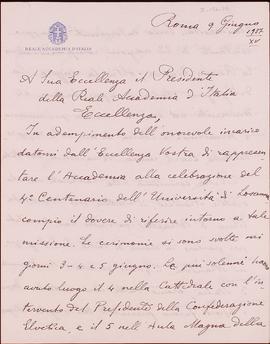 Roma 9 Giugno
1937
XV
REALE ACCADEMIA D'ITALIA
A Sua Eccellenza il Presidente
della Reale Accademia d'Italia
Eccellenza,
In adempimento dell'onorevole incarico
datomi dall'Eccellenza Vostra di rappresen-
tare l'Accademia alla celebrazione del
4° Centenario dell'Università di Losanna
compio il dovere di riferire intorno a tale
missione. Le cerimonie si sono svolte nei
giorni 3-4 e 5 giugno. Le più solenni hanno
avuto luogo il 4 nella Cattedrale con l'in-
tervento del Presidente della Confederazione
Elvetica, e il 5 nell'Aula Magna della